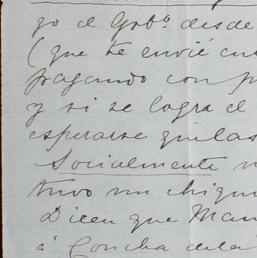 go el Gobº. desde
(que te envié cu
pagando con p
y si se logra el
esperarse que las
Socialmente n
tuvo un chiqui
Dicen que Man
á Concha de la